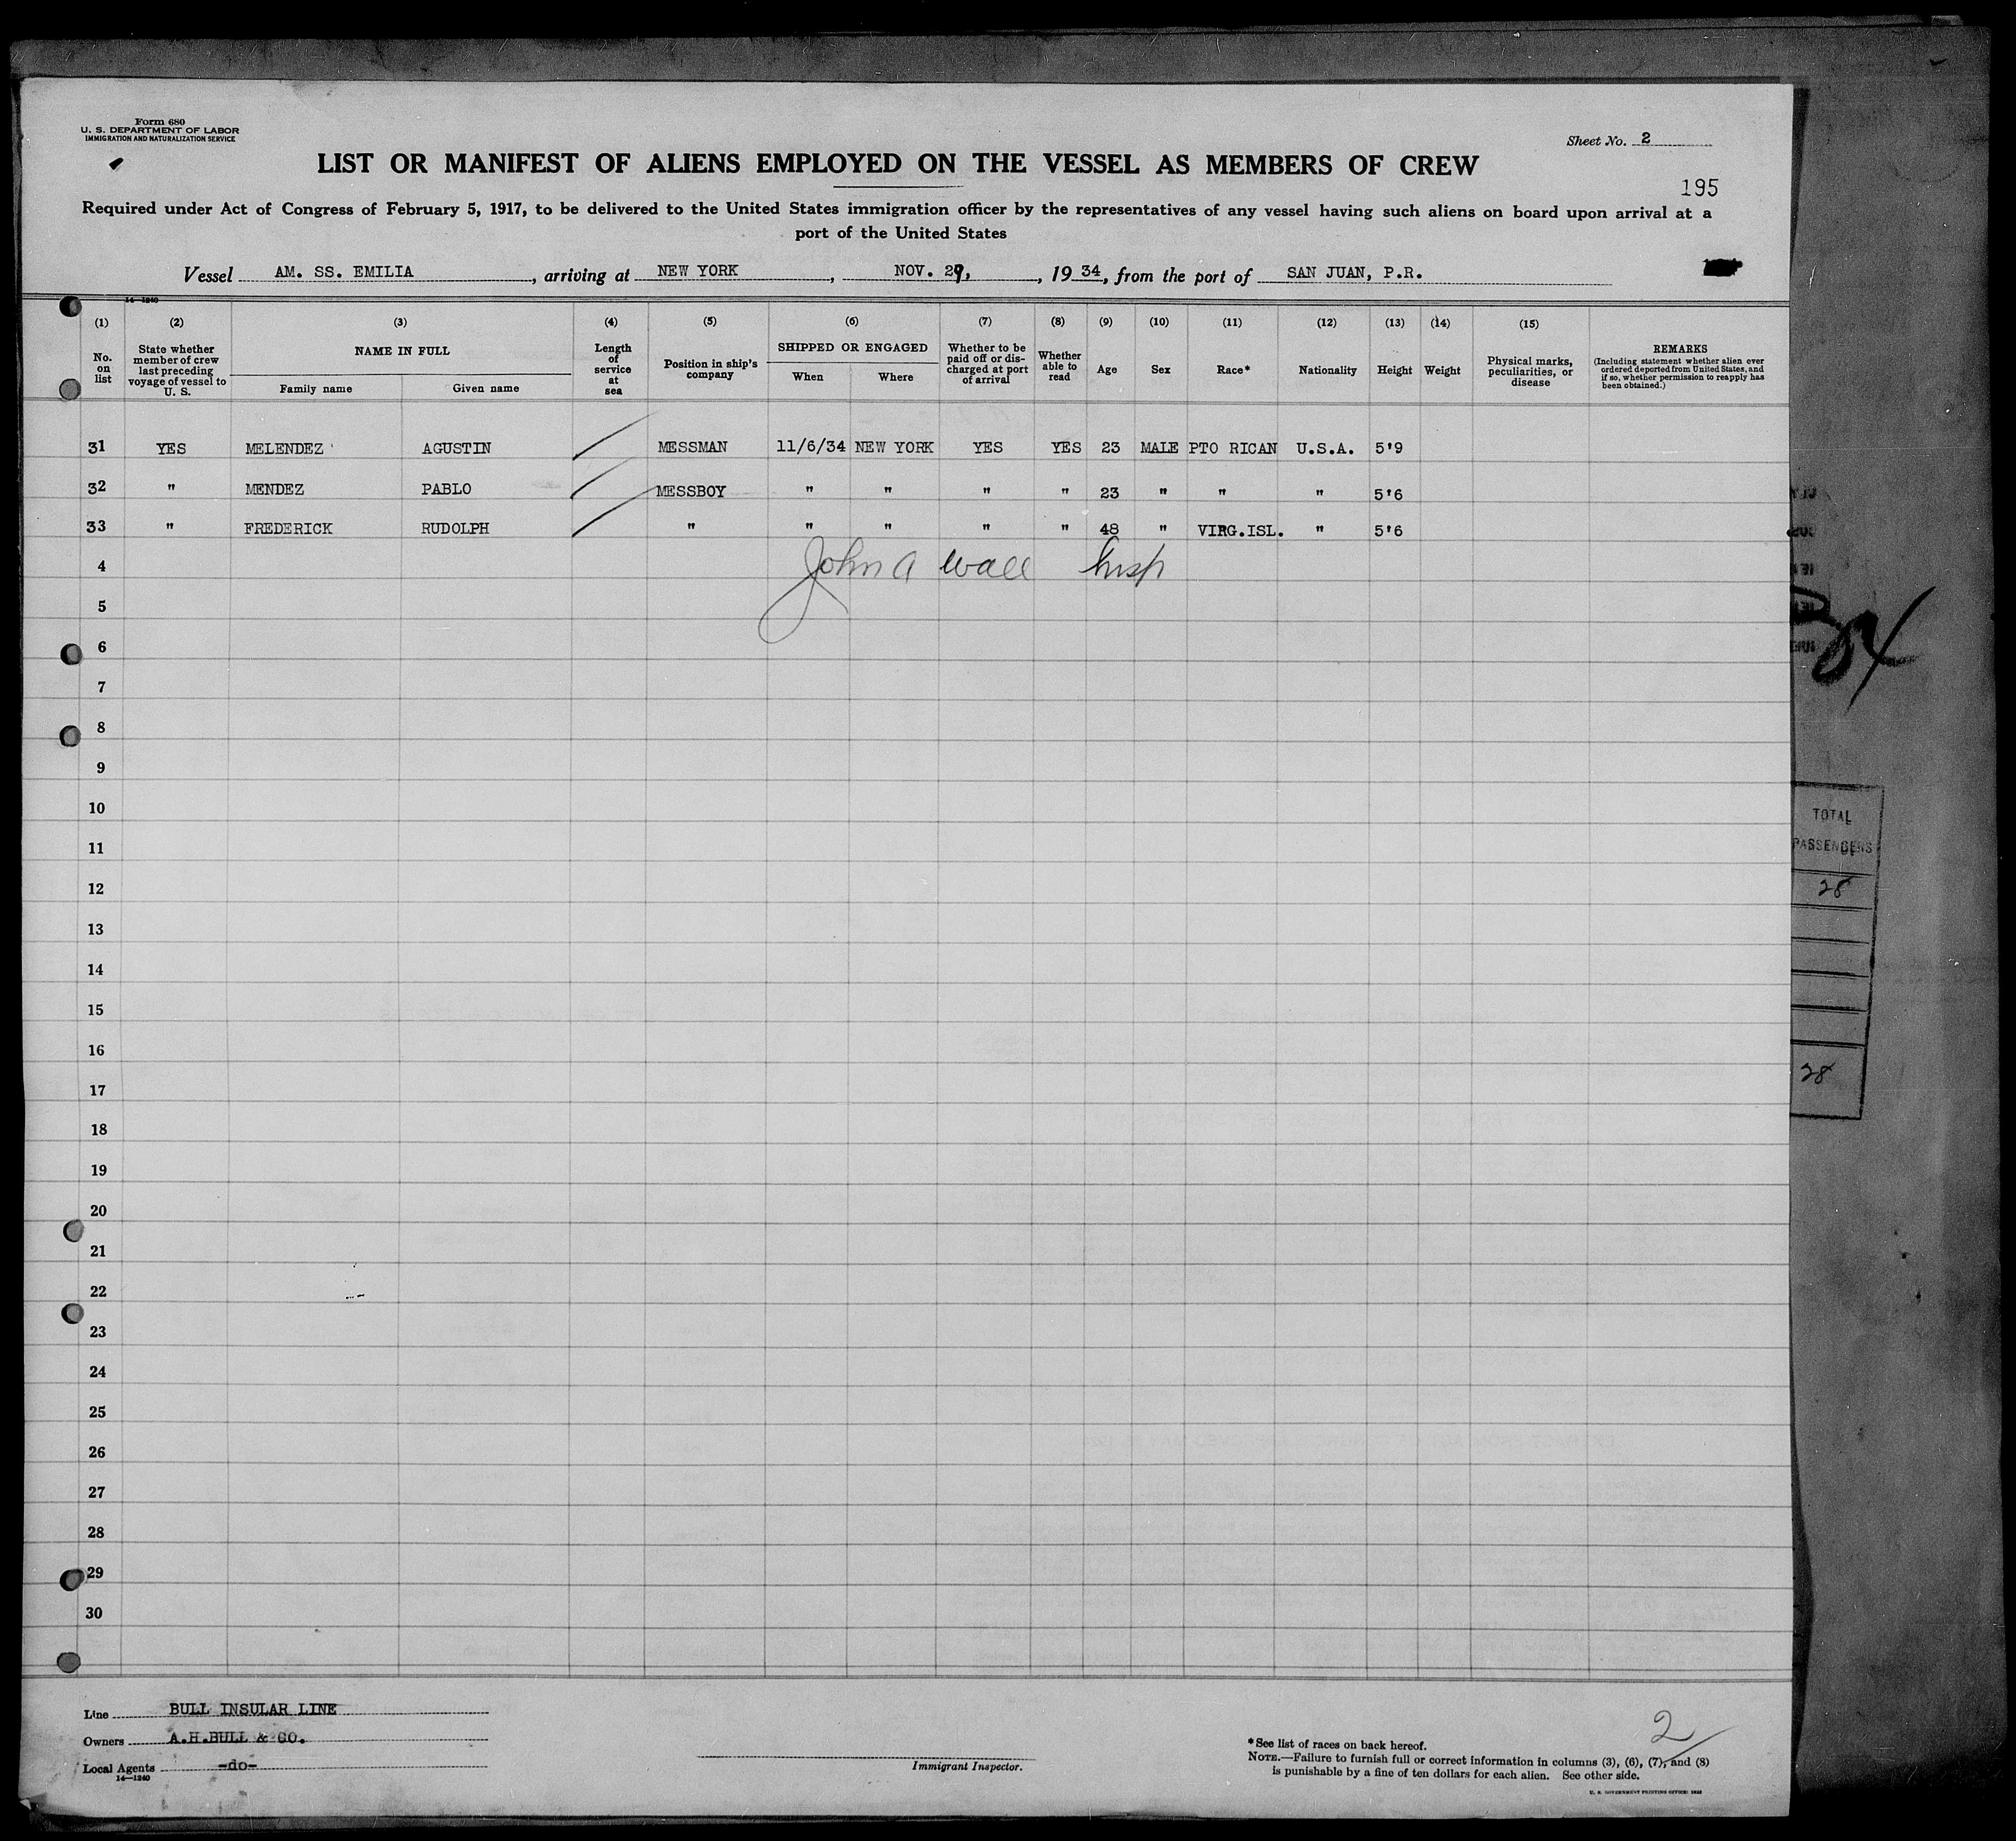 Form 680
U. S. DEPARTMENT OF LABOR
IMMIGRATION AND NATURALIZATION SERVICE
Sheet No. 2
LIST OR MANIFEST OF ALIENS EMPLOYED ON THE VESSEL AS MEMBERS OF CREW
195
Required under Act of Congress of February 5, 1917, to be delivered to the United States immigration officer by the representatives of any vessel having such aliens on board upon arrival at a
port of the United States
Vessel AM. SS. EMILIA, arriving at NEW YORK, NOV. 29, , 1934, from the port of SAN JUAN, P.R.
14—1240
(1) (2) (3) (4) (5) (6) (7) (8) (9) (10) (11) (12) (13) (14) (15)
No. on list State whether member of crew last preceding voyage of vessel to U. S. NAME IN FULL Family name Given name Length of service at sea Position in ship's company SHIPPED OR ENGAGED When Where Whether to be paid off or discharged at port of arrival Whether able to read Age Sex Race* Nationality Height Weight Physical marks, peculiarities, or disease REMARKS (Including statement whether alien ever ordered deported from United States, and if so, whether permission to reapply has been obtained.)
31 YES MELENDEZ AGUSTIN MESSMAN 11/6/34 NEW YORK YES YES 23 MALE PTO RICAN U.S.A. 5'9
32 " MENDEZ PABLO MESSBOY " " " " 23 " " " 5'6
33 " FREDERICK RUDOLPH " " " " " 48 " VIRG.ISL. " 5'6
4 John A Wall Insp
5
6
7
8
9
10
11
12
13
14
15
16
17
18
19
20
21
22
23
24
25
26
27
28
29
30
TOTAL
PASSENGERS
28
28
Line BULL INSULAR LINE
Owners A.H.BULL & CO.
Local Agents -do-
14—1240
Immigrant Inspector.
2
*See list of races on back hereof.
NOTE.—Failure to furnish full or correct information in columns (3), (6), (7), and (8)
is punishable by a fine of ten dollars for each alien. See other side.